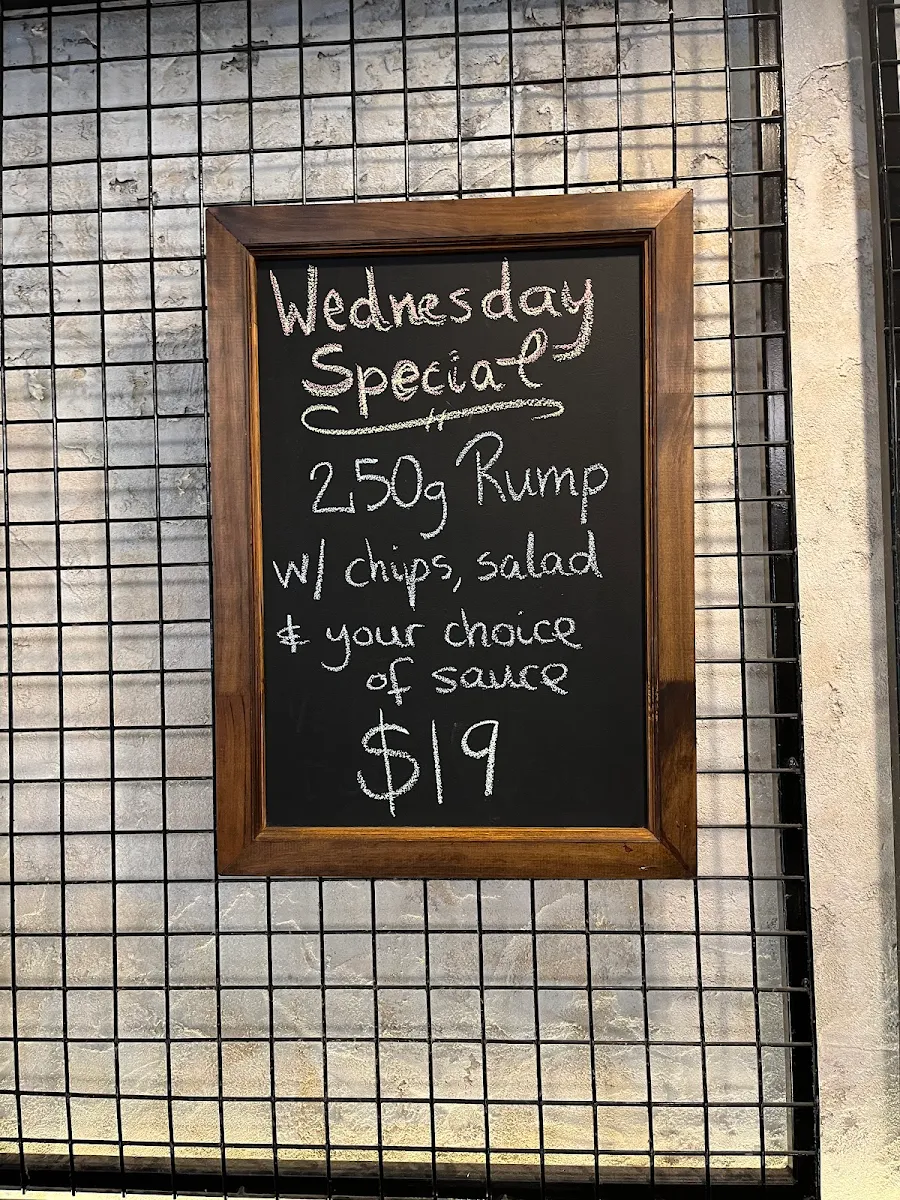 Wednesday
Special
250g Rump
w/ chips, salad
& your choice
of sauce
$19